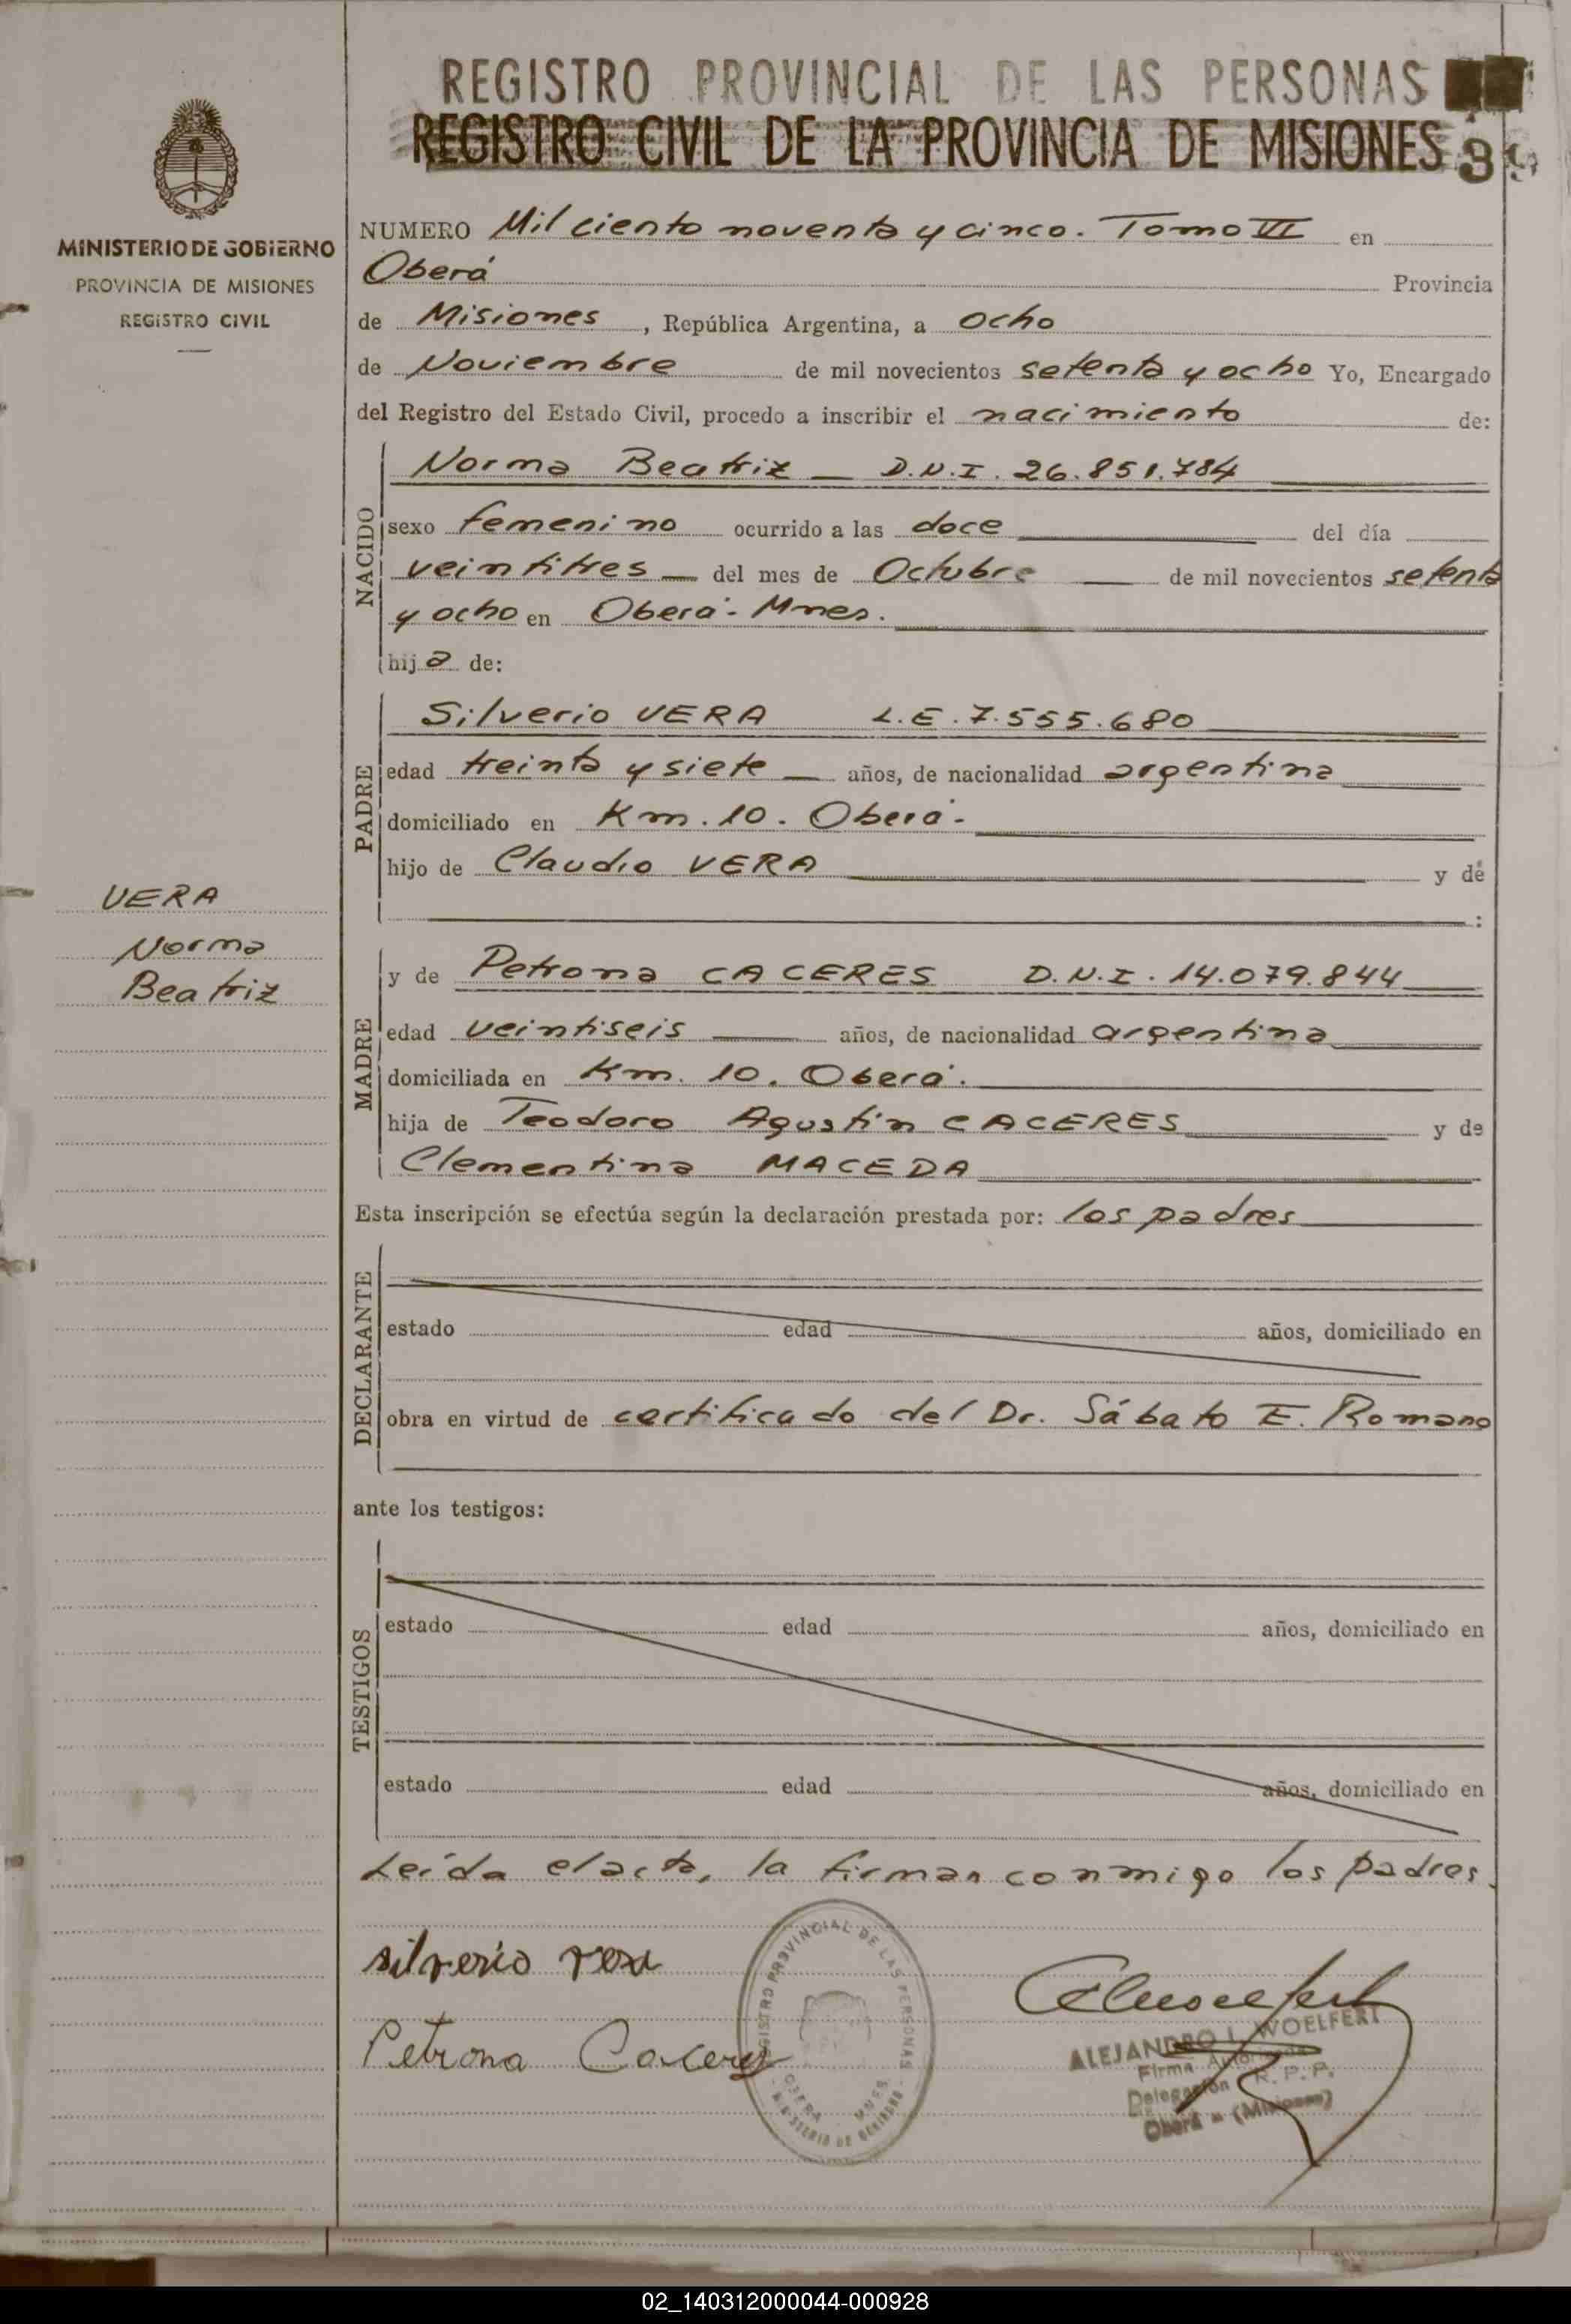 REGISTRO PROVINCIAL DE LAS PERSONAS
REGISTRO CIVIL DE LA PROVINCIA DE MISIONES
MINISTERIO DE GOBIERNO
PROVINCIA DE MISIONES
REGISTRO CIVIL
NUMERO Mil ciento noventa y cinco. Tomo VI en
Oberá Provincia
de Misiones, República Argentina, a ocho
de Noviembre de mil novecientos setenta y ocho Yo, Encargado
del Registro del Estado Civil, procedo a inscribir el nacimiento de:
NACIDO
Norma Beatriz — D.N.I. 26.851.784
sexo femenino ocurrido a las doce del día
veintitres — del mes de Octubre — de mil novecientos setenta
y ocho en Oberá - Mnes.
hija de:
PADRE
Silverio VERA L.E. 7.555.680
edad treinta y siete — años, de nacionalidad argentina
domiciliado en Km. 10. Oberá -
hijo de Claudio VERA y de
:
VERA
Norma
Beatriz
MADRE
y de Petrona CACERES D.N.I. 14.079.844
edad veintiseis — años, de nacionalidad argentina
domiciliada en Km. 10. Oberá.
hija de Teodoro Agustin CACERES y de
Clementina MACEDA
Esta inscripción se efectúa según la declaración prestada por: los padres
DECLARANTE
estado edad años, domiciliado en
obra en virtud de certificado del Dr. Sábato E. Romano
ante los testigos:
TESTIGOS
estado edad años, domiciliado en
estado edad años, domiciliado en
Leída el acta, la firman conmigo los padres.
silverio vera
Petrona Caceres
REGISTRO PROVINCIAL DE LAS PERSONAS
OBERA - MNES
MINISTERIO DE GOBIERNO
ALEJANDRO L. WOELFERT
Firma Autorizada
Delegación R.P.P.
Oberá - (Misiones)
02_140312000044-000928